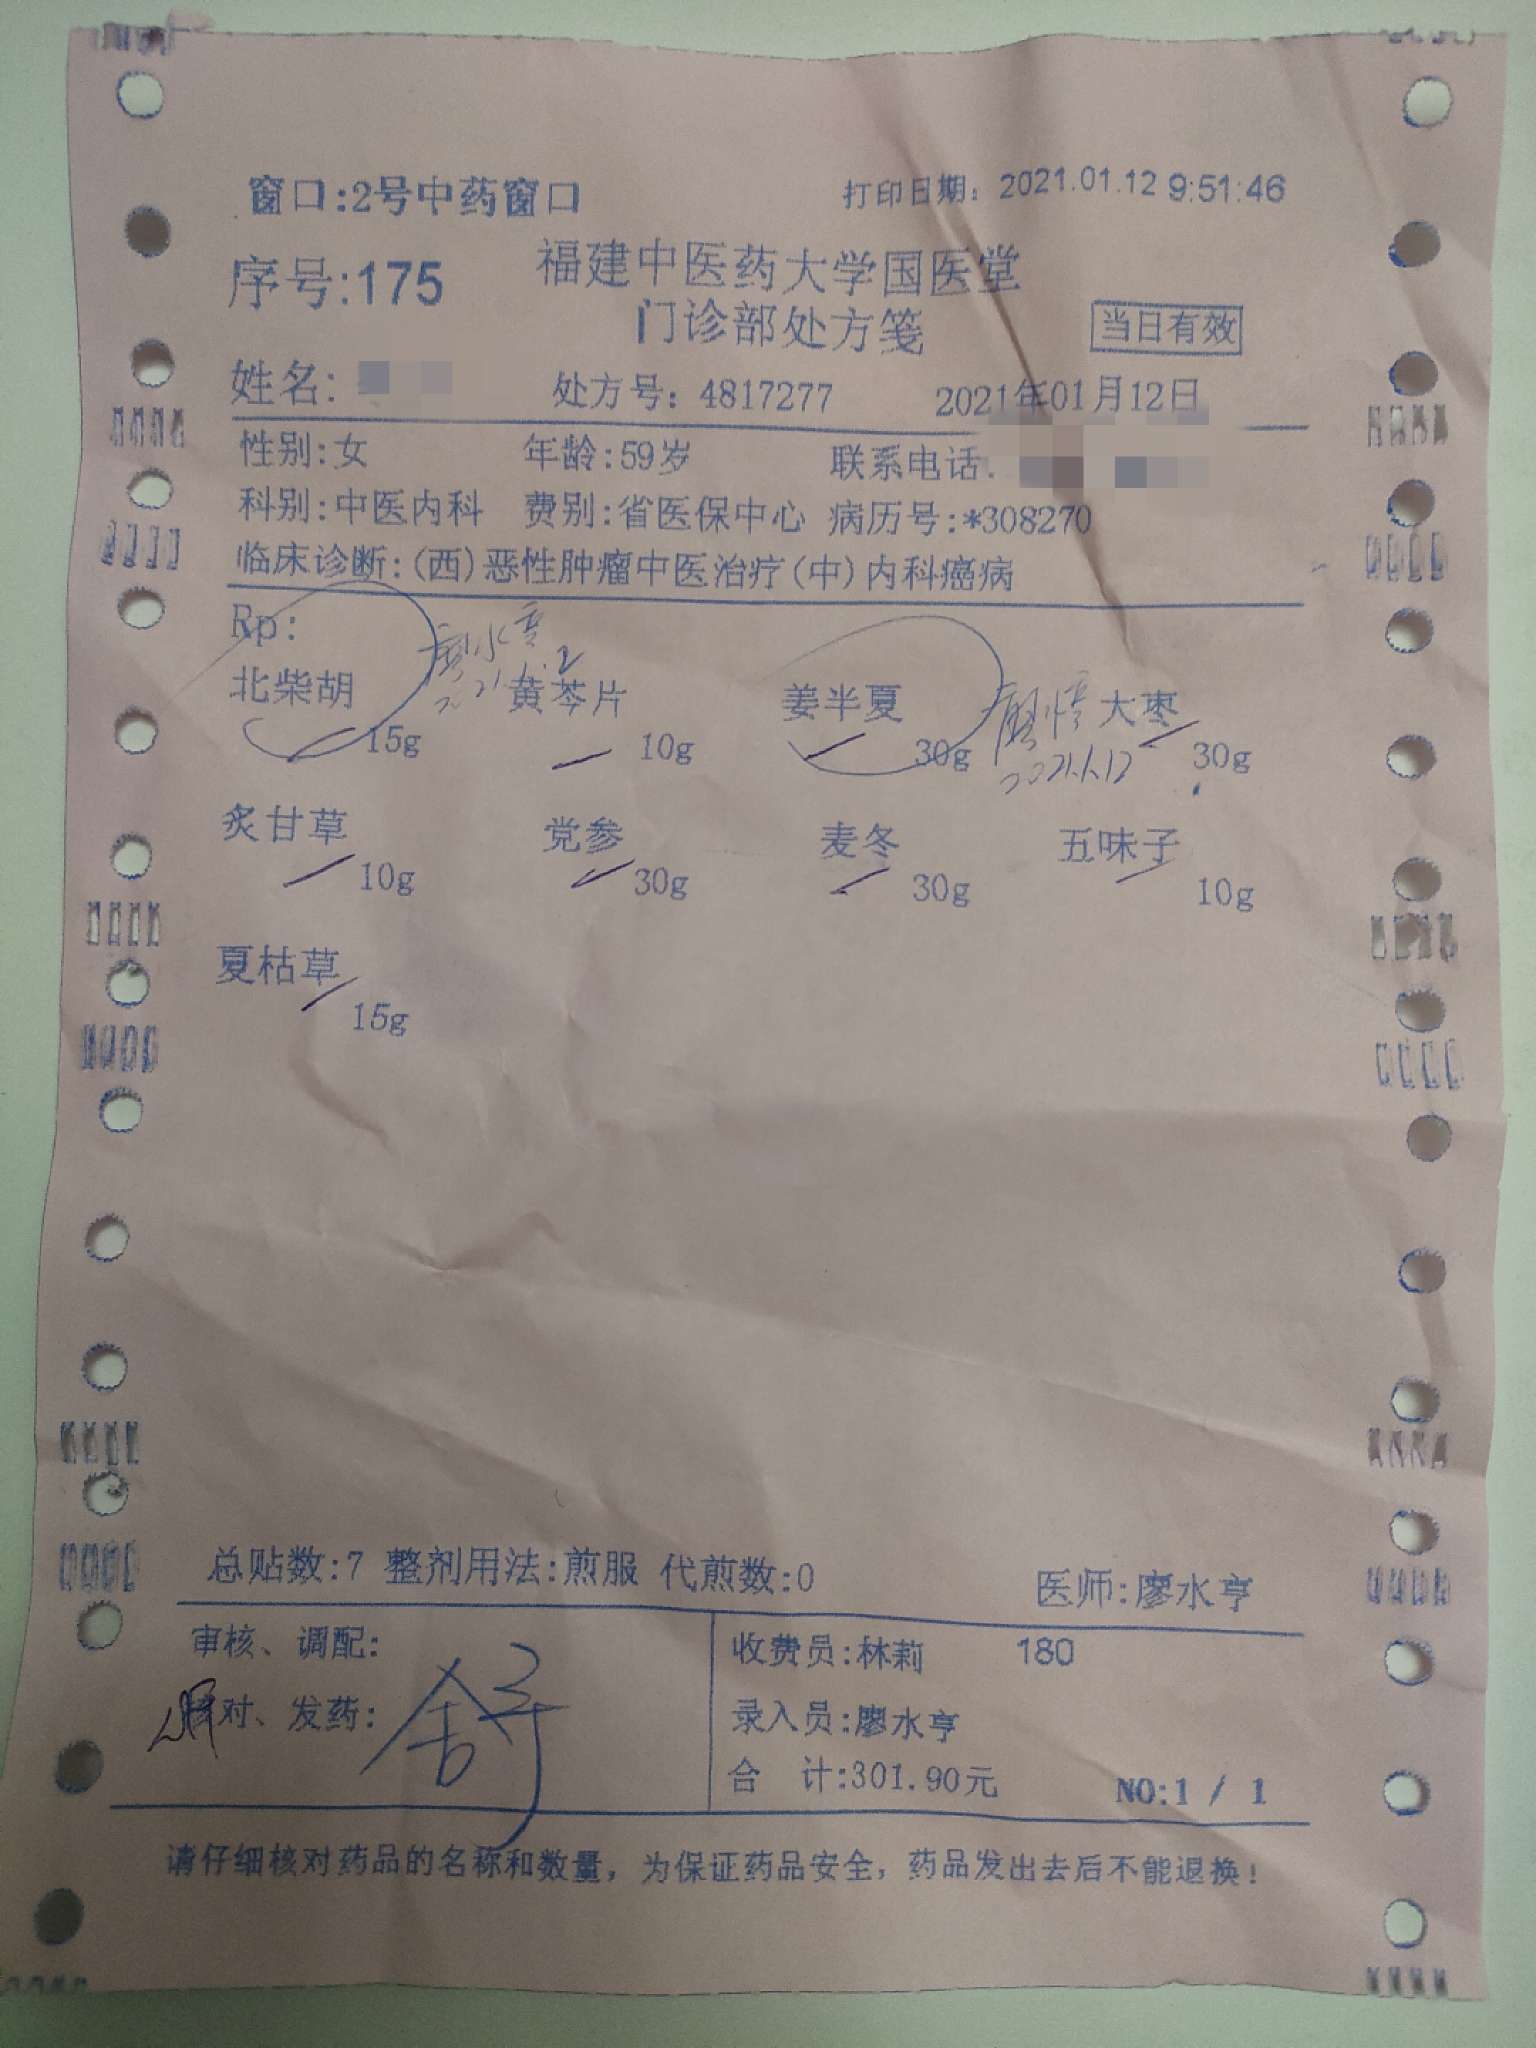 窗口:2号中药窗口 打印日期: 2021.01.12 9:51:46
序号:175 福建中医药大学国医堂
门诊部处方笺 当日有效
姓名: 处方号: 4817277 2021年01月12日
性别:女 年龄:59岁 联系电话:
科别:中医内科 费别:省医保中心 病历号:*308270
临床诊断:(西)恶性肿瘤中医治疗(中)内科癌病
Rp: 廖水亨
北柴胡 黄芩片 姜半夏 大枣
15g 10g 30g 2021.1.12 30g
炙甘草 党参 麦冬 五味子
10g 30g 30g 10g
夏枯草
15g
总贴数:7 整剂用法:煎服 代煎数:0 医师:廖水亨
审核、调配: 收费员:林莉 180
核对、发药: 舒 录入员:廖水亨
合 计:301.90元 NO:1 / 1
请仔细核对药品的名称和数量，为保证药品安全，药品发出去后不能退换!